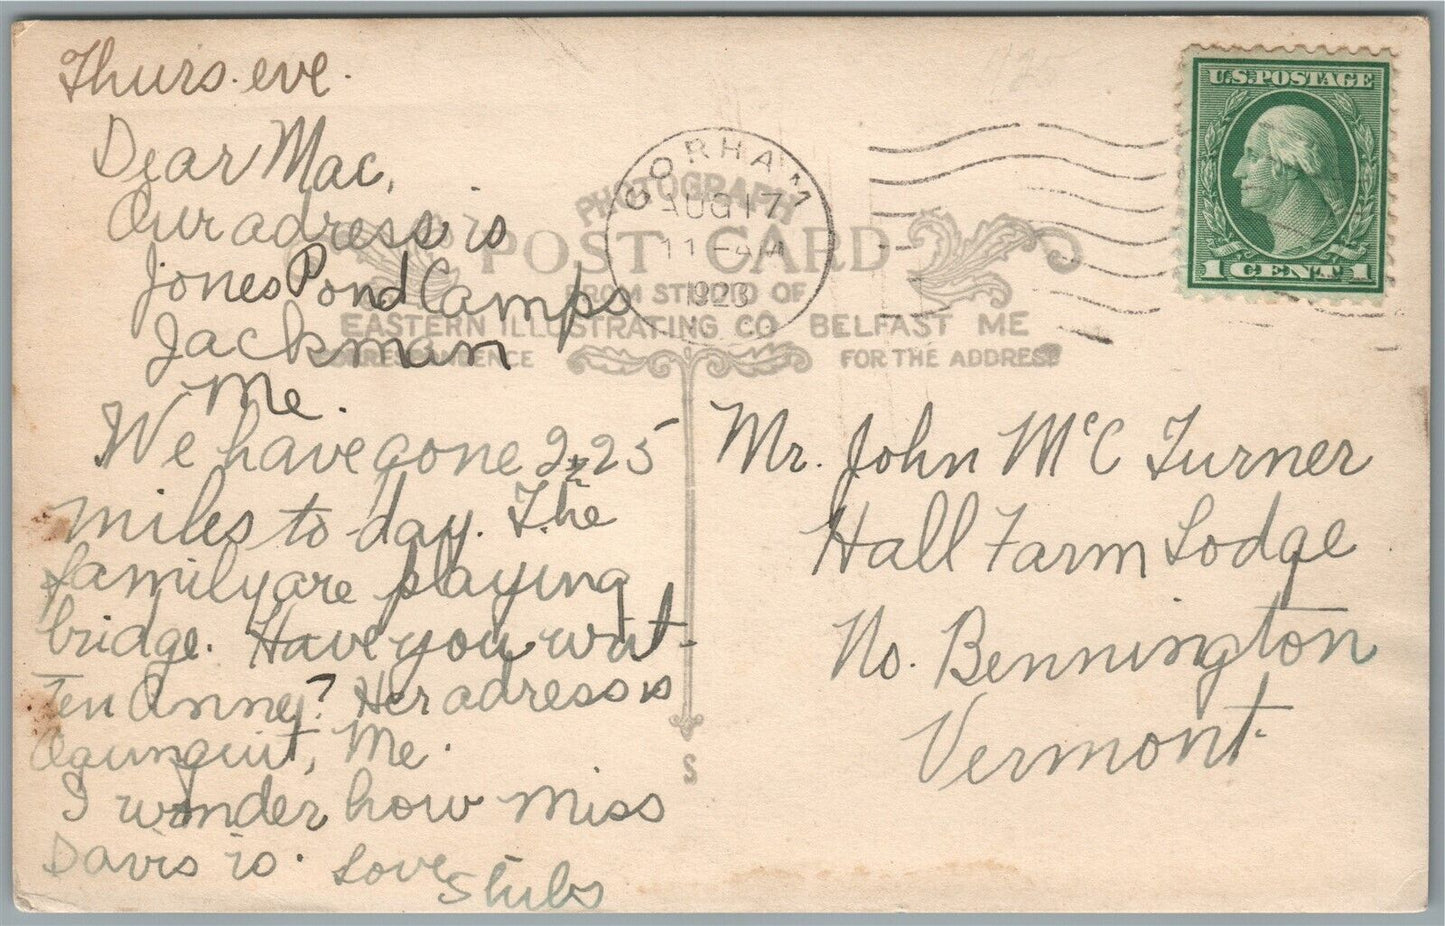 Thurs. eve.
Dear Mac,
Our adress is
Jones Pond Camps
Jackman
Me.
We have gone 225
miles to day. The
family are playing
bridge. Have you writ-
ten Anney? Her adress is
Ogunquit, Me.
I wonder how Miss
Davis is. Love
Stubs
GORHAM
AUG 17
11-AM
1923
N.H.
PHOTOGRAPH
POST CARD
FROM STUDIO OF
EASTERN ILLUSTRATING CO BELFAST ME
CORRESPONDENCE
FOR THE ADDRESS
S
U.S. POSTAGE
1 CENT 1
Mr. John McC Turner
Hall Farm Lodge
No. Bennington
Vermont.